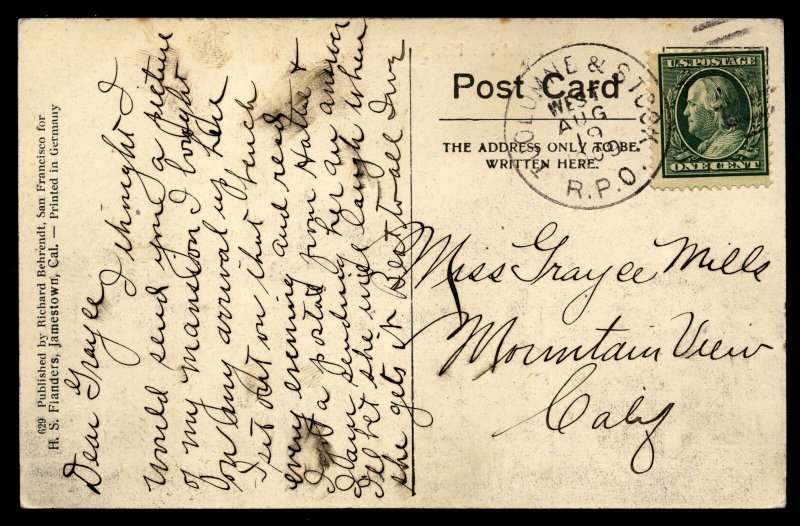 629 Published by Richard Behrendt, San Francisco for
H. S. Flanders, Jamestown, Cal. — Printed in Germany
Dear Graycee I thought I
would send you a picture
of my mansion I bought
on my arrival up here
I sit out on that bench
every evening and read
I got a postal from Hattie &
I am sending her an answer
I'll bet she will laugh when
she gets it Best to all Irvz
Post Card
THE ADDRESS ONLY TO BE
WRITTEN HERE.
TUOLUMNE & STOCK
WEST
AUG
19
09
R.P.O.
U.S. POSTAGE
ONE CENT
Miss Graycee Mills
Mountain View
Calif